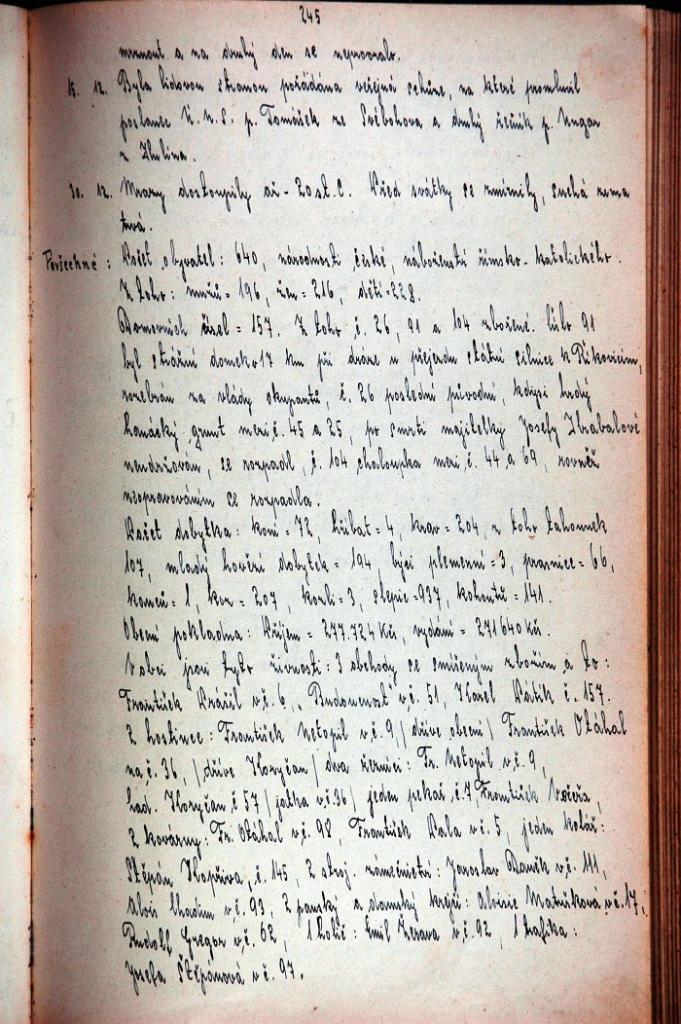 245
mrznout a na druhý den se nepracovalo.
15. 12. Byla lidovou stranou pořádána veřejná schůze, na které promluvil
poslanec Ú.N.S. p. Tomášek ze Svébohova a druhý řečník p. Ungar
z Zhulina.
30. 12. Mrazy dostoupily až -20 st. C. Před svátky se zmírnily, suchá zima
trvá.
Povšechné: Počet obyvatel: 640, národnosti české, náboženství římsko-katolického.
Z toho: mužů = 196, žen = 216, dětí = 228.
Domovních čísel = 157. Z toho č. 26, 91 a 104 zbořené. Číslo 91
byl strážní domek 17 km při dráze u přejezdu státní silnice k Říkovicím,
rozebrán za vlády okupantů, č. 26 poslední původní, kdysi hrdý
hanácký grunt mezi č. 45 a 25, po smrti majitelky Josefy Zbrabalové
neudržován, se rozpadl, č. 104 chaloupka mezi č. 44 a 69, rovněž
neopravováním se rozpadla.
Počet dobytka: koní = 72, hříbat = 4, krav = 204, z toho tahounek
107, mladý hovězí dobytek = 194, býci plemenní = 3, prasnice = 66,
kanců = 1, koz = 207, kozli = 3, slepic = 937, kohoutů = 141.
Obecní pokladna: Příjem = 277.724 Kčs, vydání = 271640 Kčs.
V obci jsou tyto živnosti: 3 obchody se smíšeným zbožím a to:
František Krášil v č. 6, Budoucnost v č. 51, Karel Pátík č. 157.
2 hostince: František Netopil v č. 9, /dříve obecní/ František Otáhal
na č. 36, /dříve Koryčan/ dva řezníci: Fr. Netopil v č. 9,
Lad. Koryčan č 57 /jatka v č. 36/ jeden pekař č. 7 František Večeřa,
2 kovárny: Fr. Otáhal v č. 98, František Pala v č. 5, jeden kolář:
Štěpán Kopřiva, č. 145, 2 stroj. zámečnictví: Jaroslav Daněk v č. 111,
Alois Chudin v č. 93, 2 pánský a dámský krejčí: Aloisie Matušková v č. 17,
Rudolf Gregor v č. 62, 1 holič: Emil Žerava v č. 92, 1 trafika:
Josefa Štěpánová v č. 97.